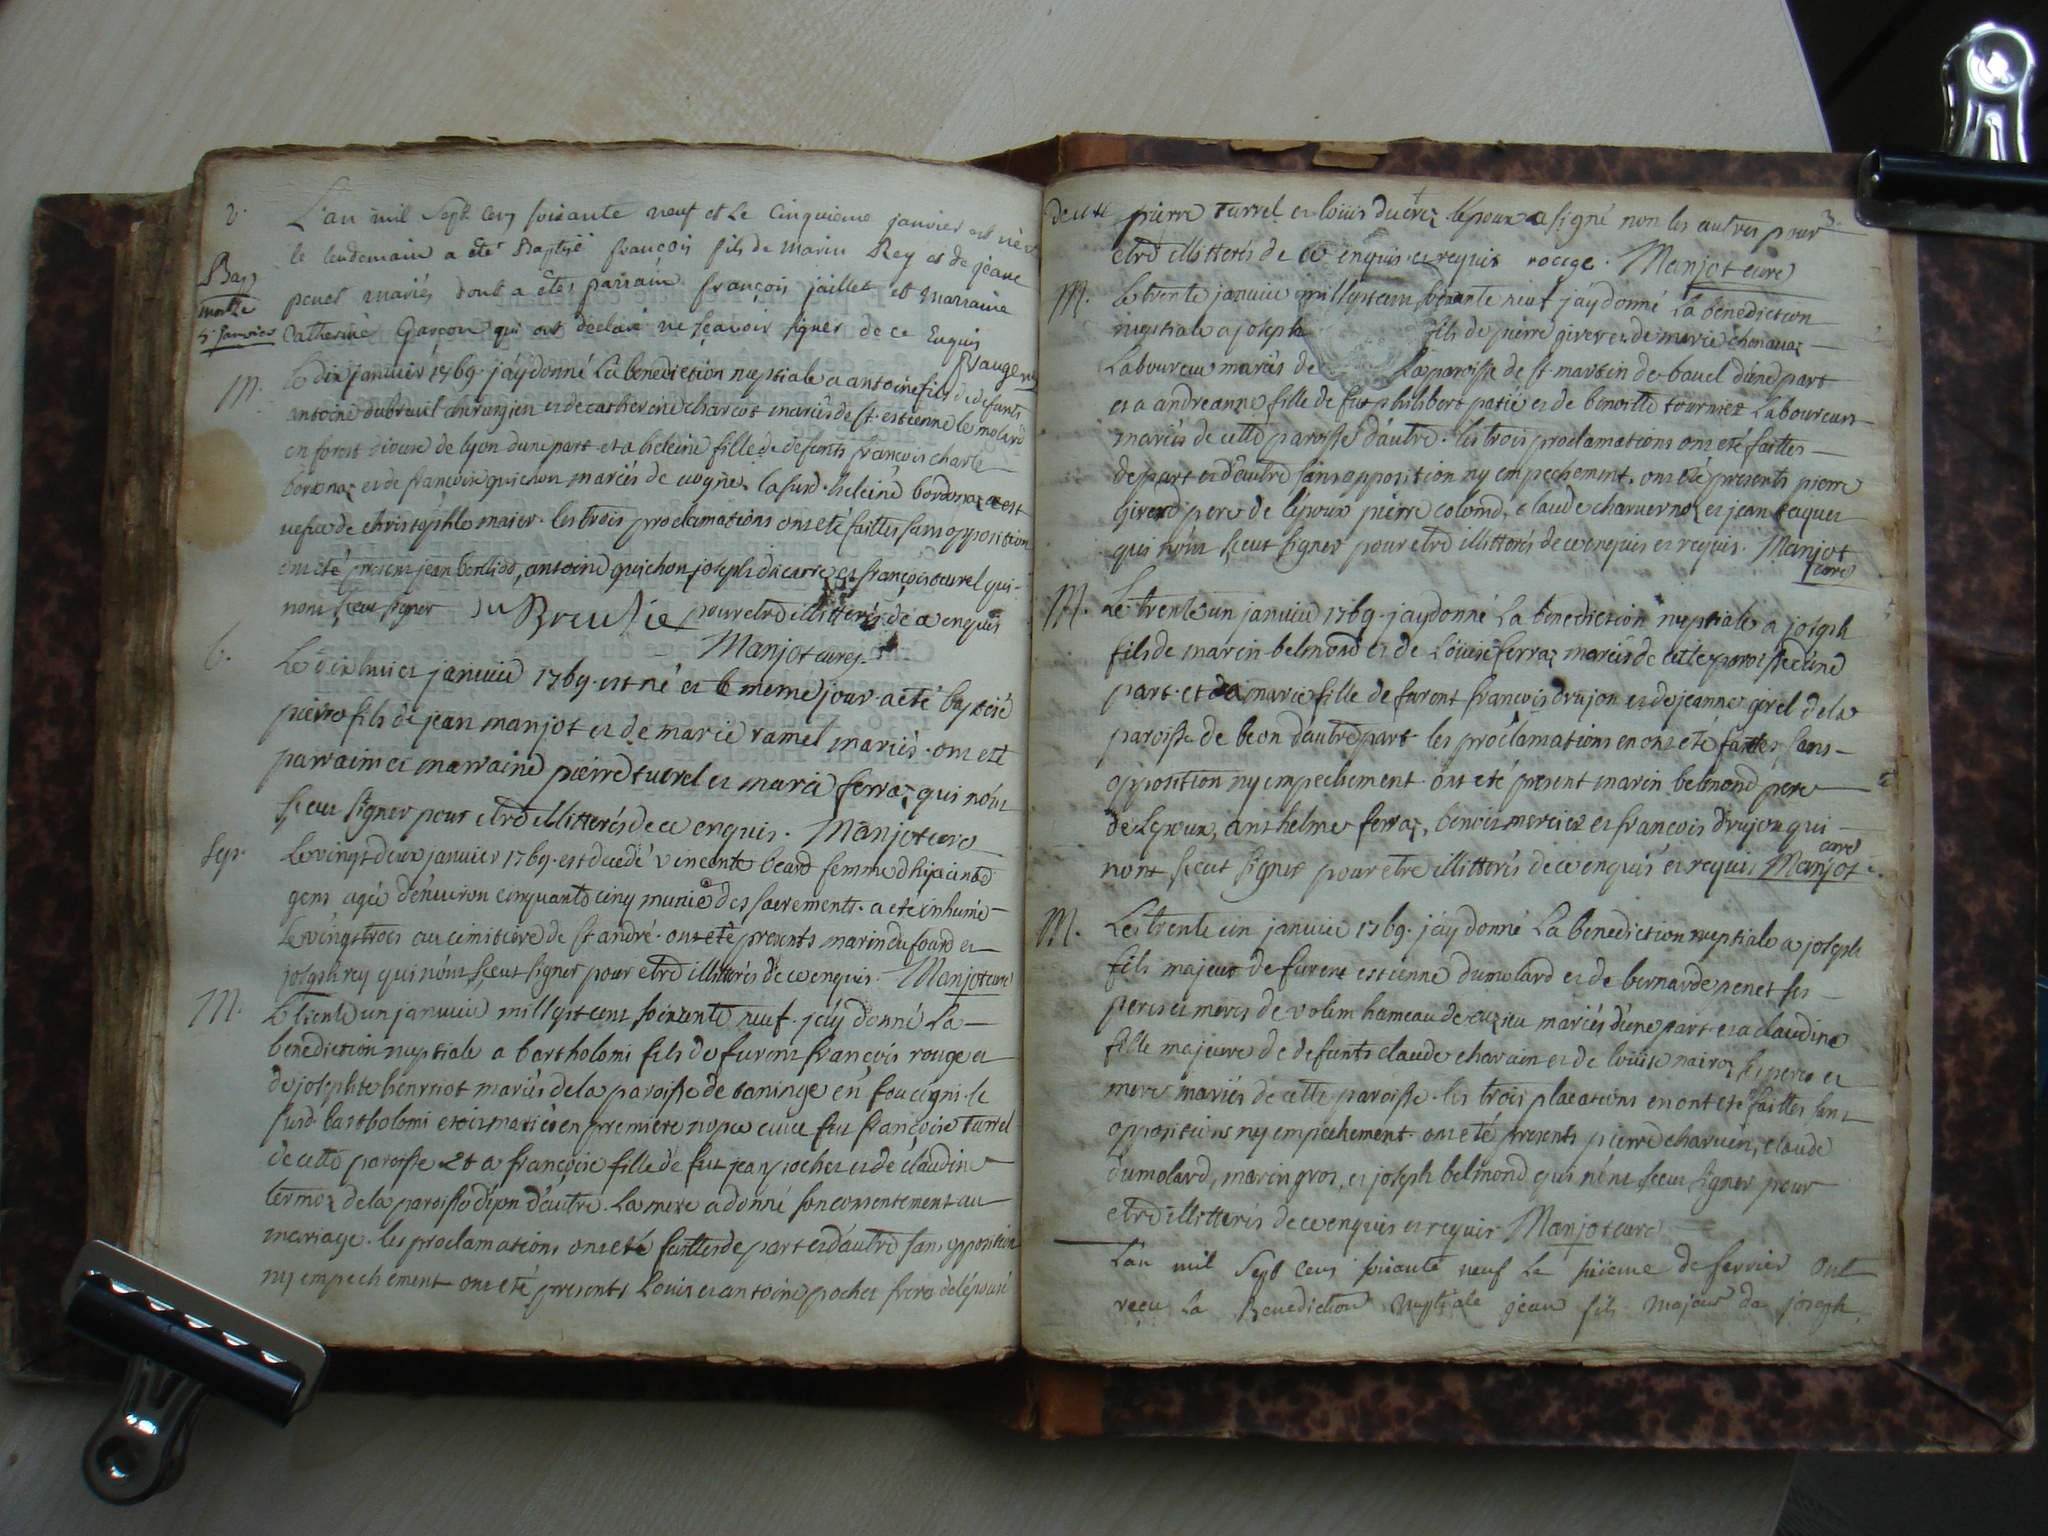 L'an mil Sept Cens soixante neuf et Le Cinquieme janvier est né et
le lendemain a été Baptisé françois fils de marin Rey et de jeane
Bap
penet mariés dont a êtes parrain françois jaillet et marraine
5 janvier
Catherine Garçon qui ont déclaré ne sçavoir signer de ce Enquis
M.
le dix janvier 1769. j'ay donné La benediction nuptiale a antoine fils de defunts
antoine dubreuil chirurgien et de catherine charcot mariés de st. estienne le molard
en forest diocese de lyon dune part et a heleine fille de defunts françois charle
bordonaz et de françoise quichon mariés de ceogne. la susd. heleine bordonaz est
vefve de christophle maier. les trois proclamations ont eté faittes sans opposition
ont été present jean berlliod, antoine quichon joseph ducarre et françois turrel qui
nont sceu signer pour etre illitterés de ce enquis
Manjot curé
b.
Le dix huict janvier 1769. est né et le meme jour a eté baptisé
pierre fils de jean manjot et de marie ramel mariés. ont eté
parrain et marraine pierre turrel et marie ferraz qui n'ont
sceu signer pour etre illitterés de ce enquis. Manjot curé
Sep.
Le vingt deux janvier 1769. est decedé vincente beard femme d'hijacinthe
gens agée d'environ cinquante cinq munie des sacrements. a eté inhumé
le vingt trois au cimitiere de st andré. ont eté presents marin dufourd et
joseph rey qui n'ont sceut signer pour etre illitterés de ce enquis. Manjot curé
M.
Le trente un janvier mill sept cent soixante neuf. j'ay donné La
benediction nuptiale a bartholomi fils de furent françois rouge et
de josephte henrriot mariés de la paroisse de taninge en foucigni. le
susd. bartholomi etoit marié en premiere nopce avec feu françoise turrel
de cette paroisse et a françoise fille de fut jean pochet et de claudine
termoz de la paroisse d'ijon d'autre. La mere a donné son consentement au
mariage. les proclamations ont eté faittes de part et d'autre sans opposition
ny empechement ont eté presents Louis et antoine pochet frere de l'épouse
pierre Turrel et louis ducrez l'époux a signé non les autres pour
3.
etre illitterés de ce enquis et requis rouge. Manjot curé
M.
Le trente janvier mill sept cent soixante neuf j'ay donné La benediction
nuptiale a joseph fils de pierre giverd et de marie chenavaz
Laboureur mariés de La paroisse de st. martin de bavel d'une part
et a andreanne fille de fut philibert patié et de benoitte tournier Laboureurs
mariés de cette paroisse d'autre. les trois proclamations ont eté faittes
de part et d'autre sans opposition ny empechement. ont eté presents pierre
giverd pere de l'époux pierre colomd, claude charvernoz et jean jaquet
qui n'ont sceut signer pour etre illitterés de ce enquis et requis. Manjot
curé
M.
Le trente un janvier 1769. j'ay donné La benediction nuptiale a joseph
fils de marin belmond et de Louise ferraz mariés de cette paroisse d'une
part et a marie fille de furent françois drujon et de jeanne girel de la
paroisse de beon d'autre part les proclamations en ont eté faittes sans
opposition ny empechement ont eté present marin belmond pere
de L'epoux, anthelme ferraz, benoit mercier et françois drujon qui
n'ont sceut signer pour etre illitterés de ce enquis et requis Manjot curé
M.
Le trente un janvier 1769. j'ay donné La benediction nuptiale a joseph
fils majeur de furent estienne dumolard et de bernarde penet ses
peres et meres de volim hameau de cuzieu mariés d'une part et a claudine
fille majeure de defunts claude charvin et de louise nairoz ses peres et
mere mariés de cette paroisse. les trois placations en ont eté faittes sans
oppositions ny empechement. ont eté presents pierre charvin, claude
dumolard, marin gros, et joseph belmond qui n'ont sceut signer pour
etre illitterés de ce enquis et requis Manjot curé
L'an mil Sept Cens soixante neuf Le sixieme de fevrier Ont
reçu La Benediction Nuptiale jean fils majeur de joseph